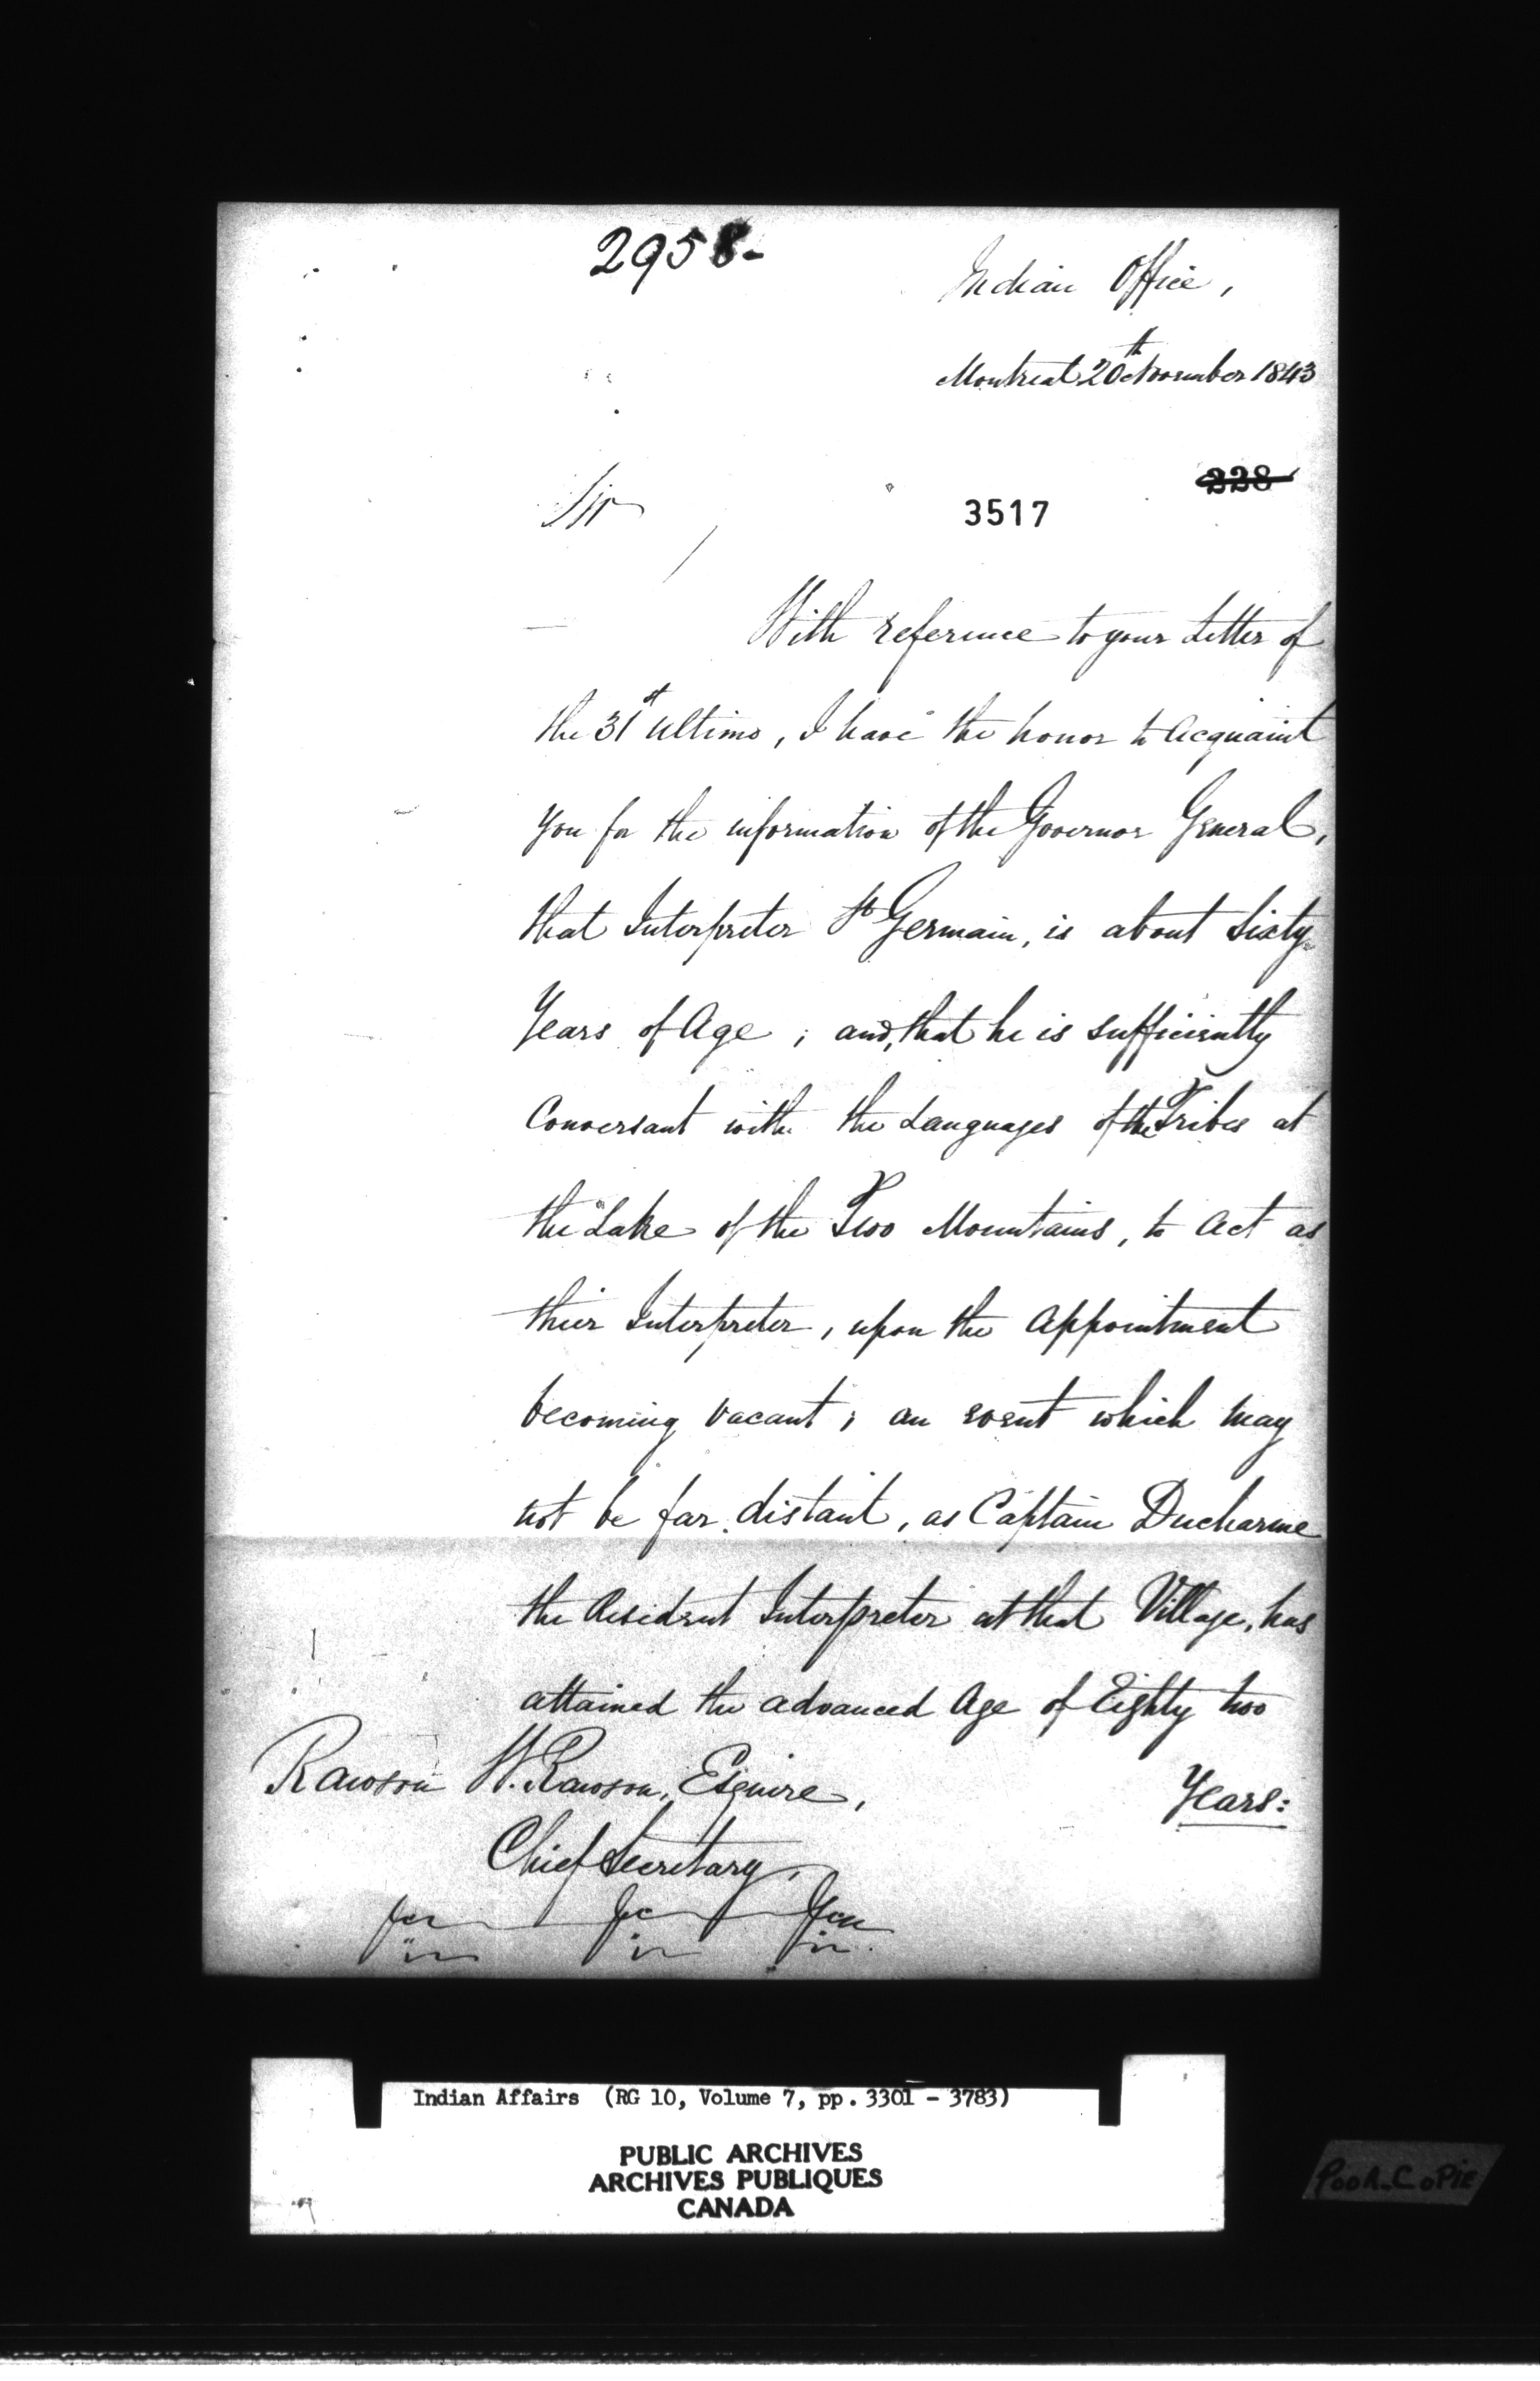 2958-
Indian Office,
Montreal 20th November 1843
228
Sir
3517
With reference to your Letter of
the 31st Ultimo, I have the honor to Acquaint
you for the information of the Governor General,
that Interpreter St Germain, is about Sixty
Years of Age; and, that he is sufficiently
Conversant with the Languages of the Tribes at
the Lake of the Two Mountains, to Act as
their Interpreter, upon the Appointment
becoming vacant; an event which may
not be far distant, as Captain Ducharme
the Resident Interpreter at that Village, has
attained the advanced Age of Eighty two
Years:
Rawson W. Rawson, Esquire,
Chief Secretary,
Indian Affairs (RG 10, Volume 7, pp. 3301 - 3783)
PUBLIC ARCHIVES
ARCHIVES PUBLIQUES
CANADA
POOR COPIE